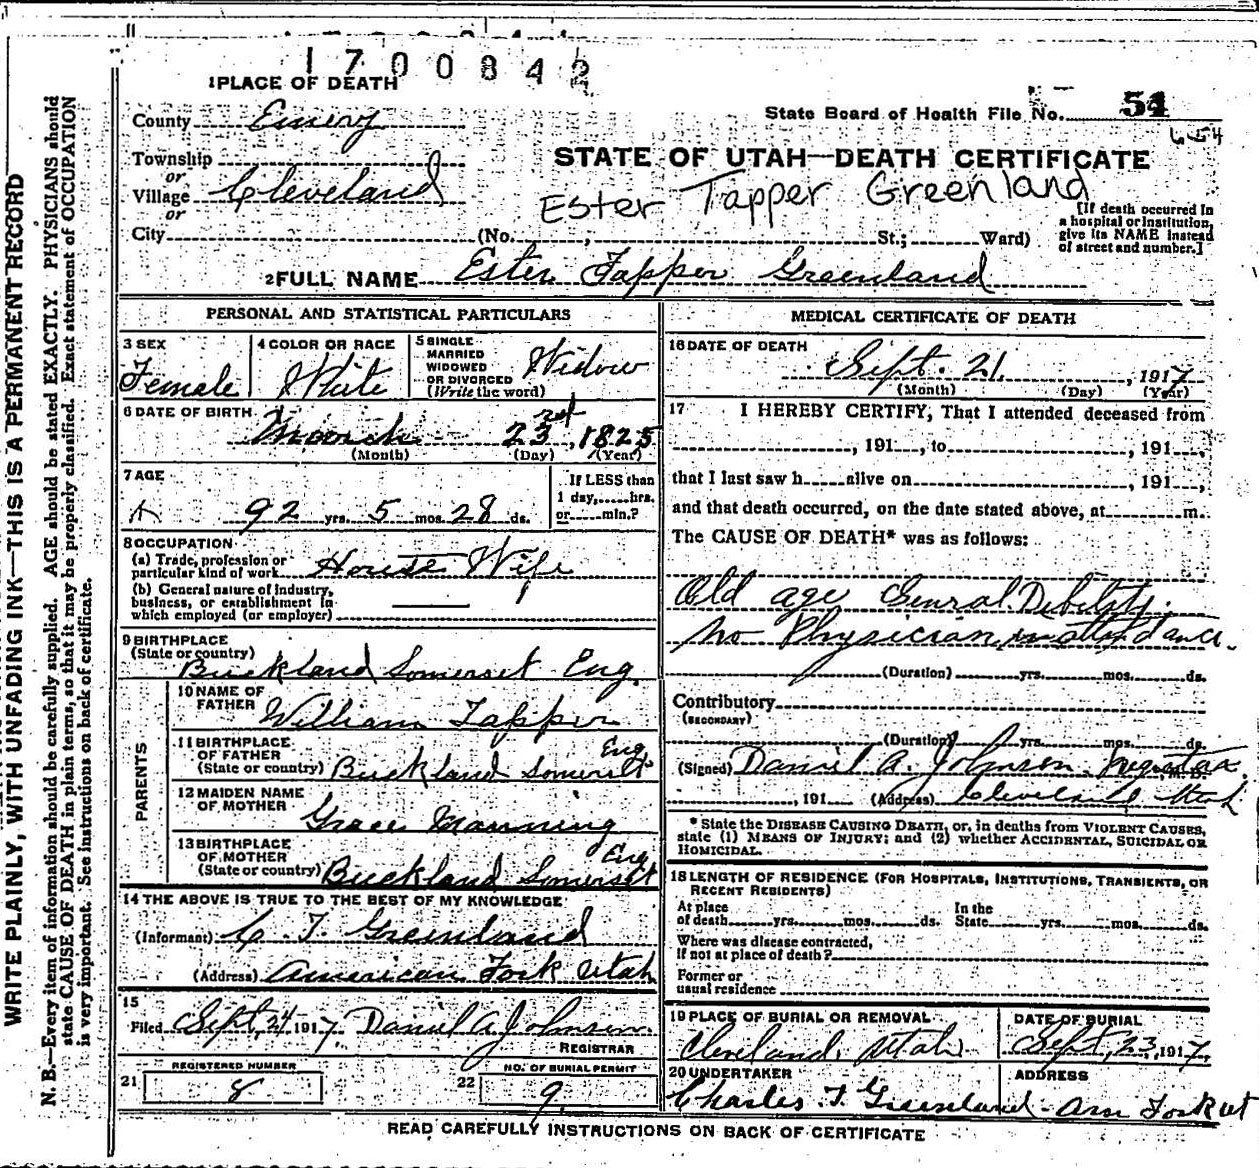 1700842
1 PLACE OF DEATH
State Board of Health File No. 54
654
County Emery
Township
or
Village Cleveland
or
City (No. , St.; Ward)
STATE OF UTAH—DEATH CERTIFICATE
Ester Tapper Greenland
[If death occurred in
a hospital or institution,
give its NAME instead
of street and number.]
2 FULL NAME Ester Tapper Greenland
PERSONAL AND STATISTICAL PARTICULARS
3 SEX
Female
4 COLOR OR RACE
White
5 SINGLE
MARRIED
WIDOWED
OR DIVORCED
(Write the word)
Widow
6 DATE OF BIRTH
March 23rd, 1825
(Month) (Day) (Year)
7 AGE
92 yrs. 5 mos. 28 ds.
If LESS than
1 day, hrs.
or min.?
8 OCCUPATION
(a) Trade, profession or
particular kind of work House Wife
(b) General nature of industry,
business, or establishment in
which employed (or employer)
9 BIRTHPLACE
(State or country)
Buckland Somerset Eng.
PARENTS
10 NAME OF
FATHER William Tapper
11 BIRTHPLACE
OF FATHER
(State or country) Buckland Somerset Eng
12 MAIDEN NAME
OF MOTHER Grace Manning
13 BIRTHPLACE
OF MOTHER
(State or country) Buckland Somerset Eng
14 THE ABOVE IS TRUE TO THE BEST OF MY KNOWLEDGE
(Informant) C. T. Greenland
(Address) American Fork Utah
15
Filed Sept. 24 1917. Daniel A. Johnson.
REGISTRAR
REGISTERED NUMBER
21 8
NO. OF BURIAL PERMIT
22 9
MEDICAL CERTIFICATE OF DEATH
16 DATE OF DEATH
Sept. 21, 1917
(Month) (Day) (Year)
17 I HEREBY CERTIFY, That I attended deceased from
, 191 , to , 191 ,
that I last saw h alive on , 191 ,
and that death occurred, on the date stated above, at m.
The CAUSE OF DEATH* was as follows:
Old age Genral Debility.
No Physician in attendance.
(Duration) yrs. mos. ds.
Contributory
(SECONDARY)
(Duration) yrs. mos. ds.
(Signed) Daniel A. Johnson. M.D.
, 191 (Address) Cleveland Utah
* State the DISEASE CAUSING DEATH, or, in deaths from VIOLENT CAUSES,
state (1) MEANS OF INJURY; and (2) whether ACCIDENTAL, SUICIDAL OR
HOMICIDAL.
18 LENGTH OF RESIDENCE (FOR HOSPITALS, INSTITUTIONS, TRANSIENTS, OR
RECENT RESIDENTS)
At place
of death yrs. mos. ds. In the
State yrs. mos. ds.
Where was disease contracted,
If not at place of death?
Former or
usual residence
19 PLACE OF BURIAL OR REMOVAL
Cleveland, Utah
DATE OF BURIAL
Sept, 23, 1917.
20 UNDERTAKER
Charles. T. Greenland
ADDRESS
Am Fork ut
READ CAREFULLY INSTRUCTIONS ON BACK OF CERTIFICATE
WRITE PLAINLY, WITH UNFADING INK—THIS IS A PERMANENT RECORD
N. B.—Every item of information should be carefully supplied. AGE should be stated EXACTLY. PHYSICIANS should
state CAUSE OF DEATH in plain terms, so that it may be properly classified. Exact statement of OCCUPATION
is very important. See instructions on back of certificate.